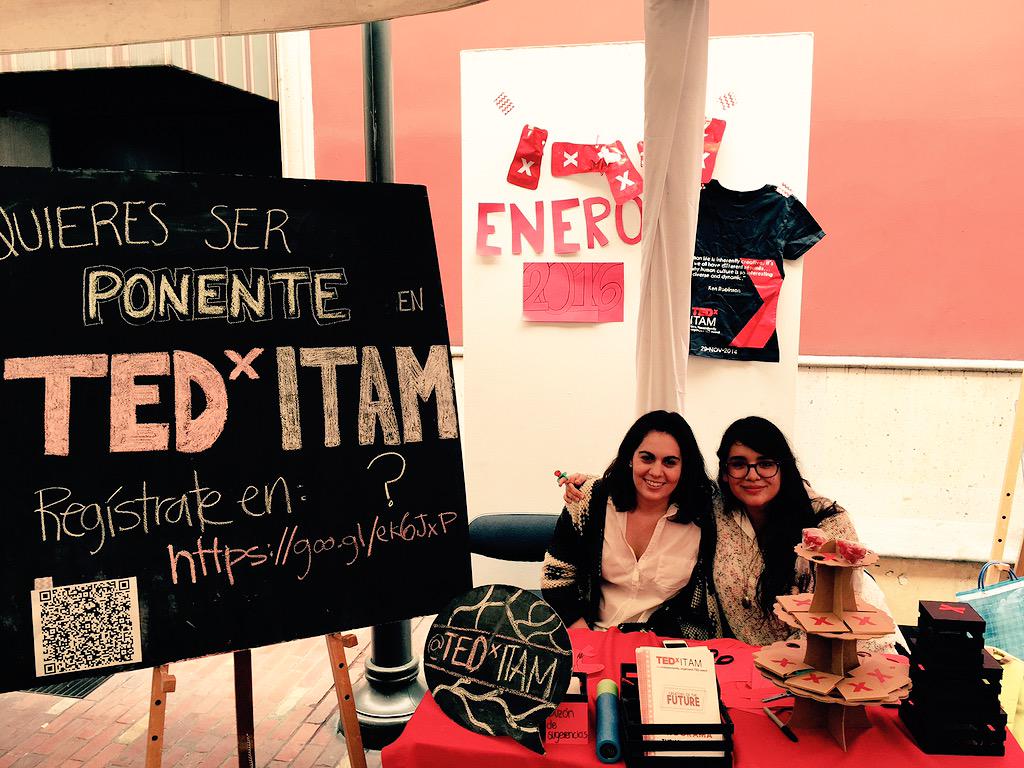 QUIERES SER
PONENTE EN
TEDx ITAM
?
Regístrate en:
https://goo.gl/ek6JxP
@TEDxITAM
ENERO
2016
Ken Robinson
TEDx
ITAM
29-NOV-2014
TEDxITAM
FUTURE
de
sugerencias